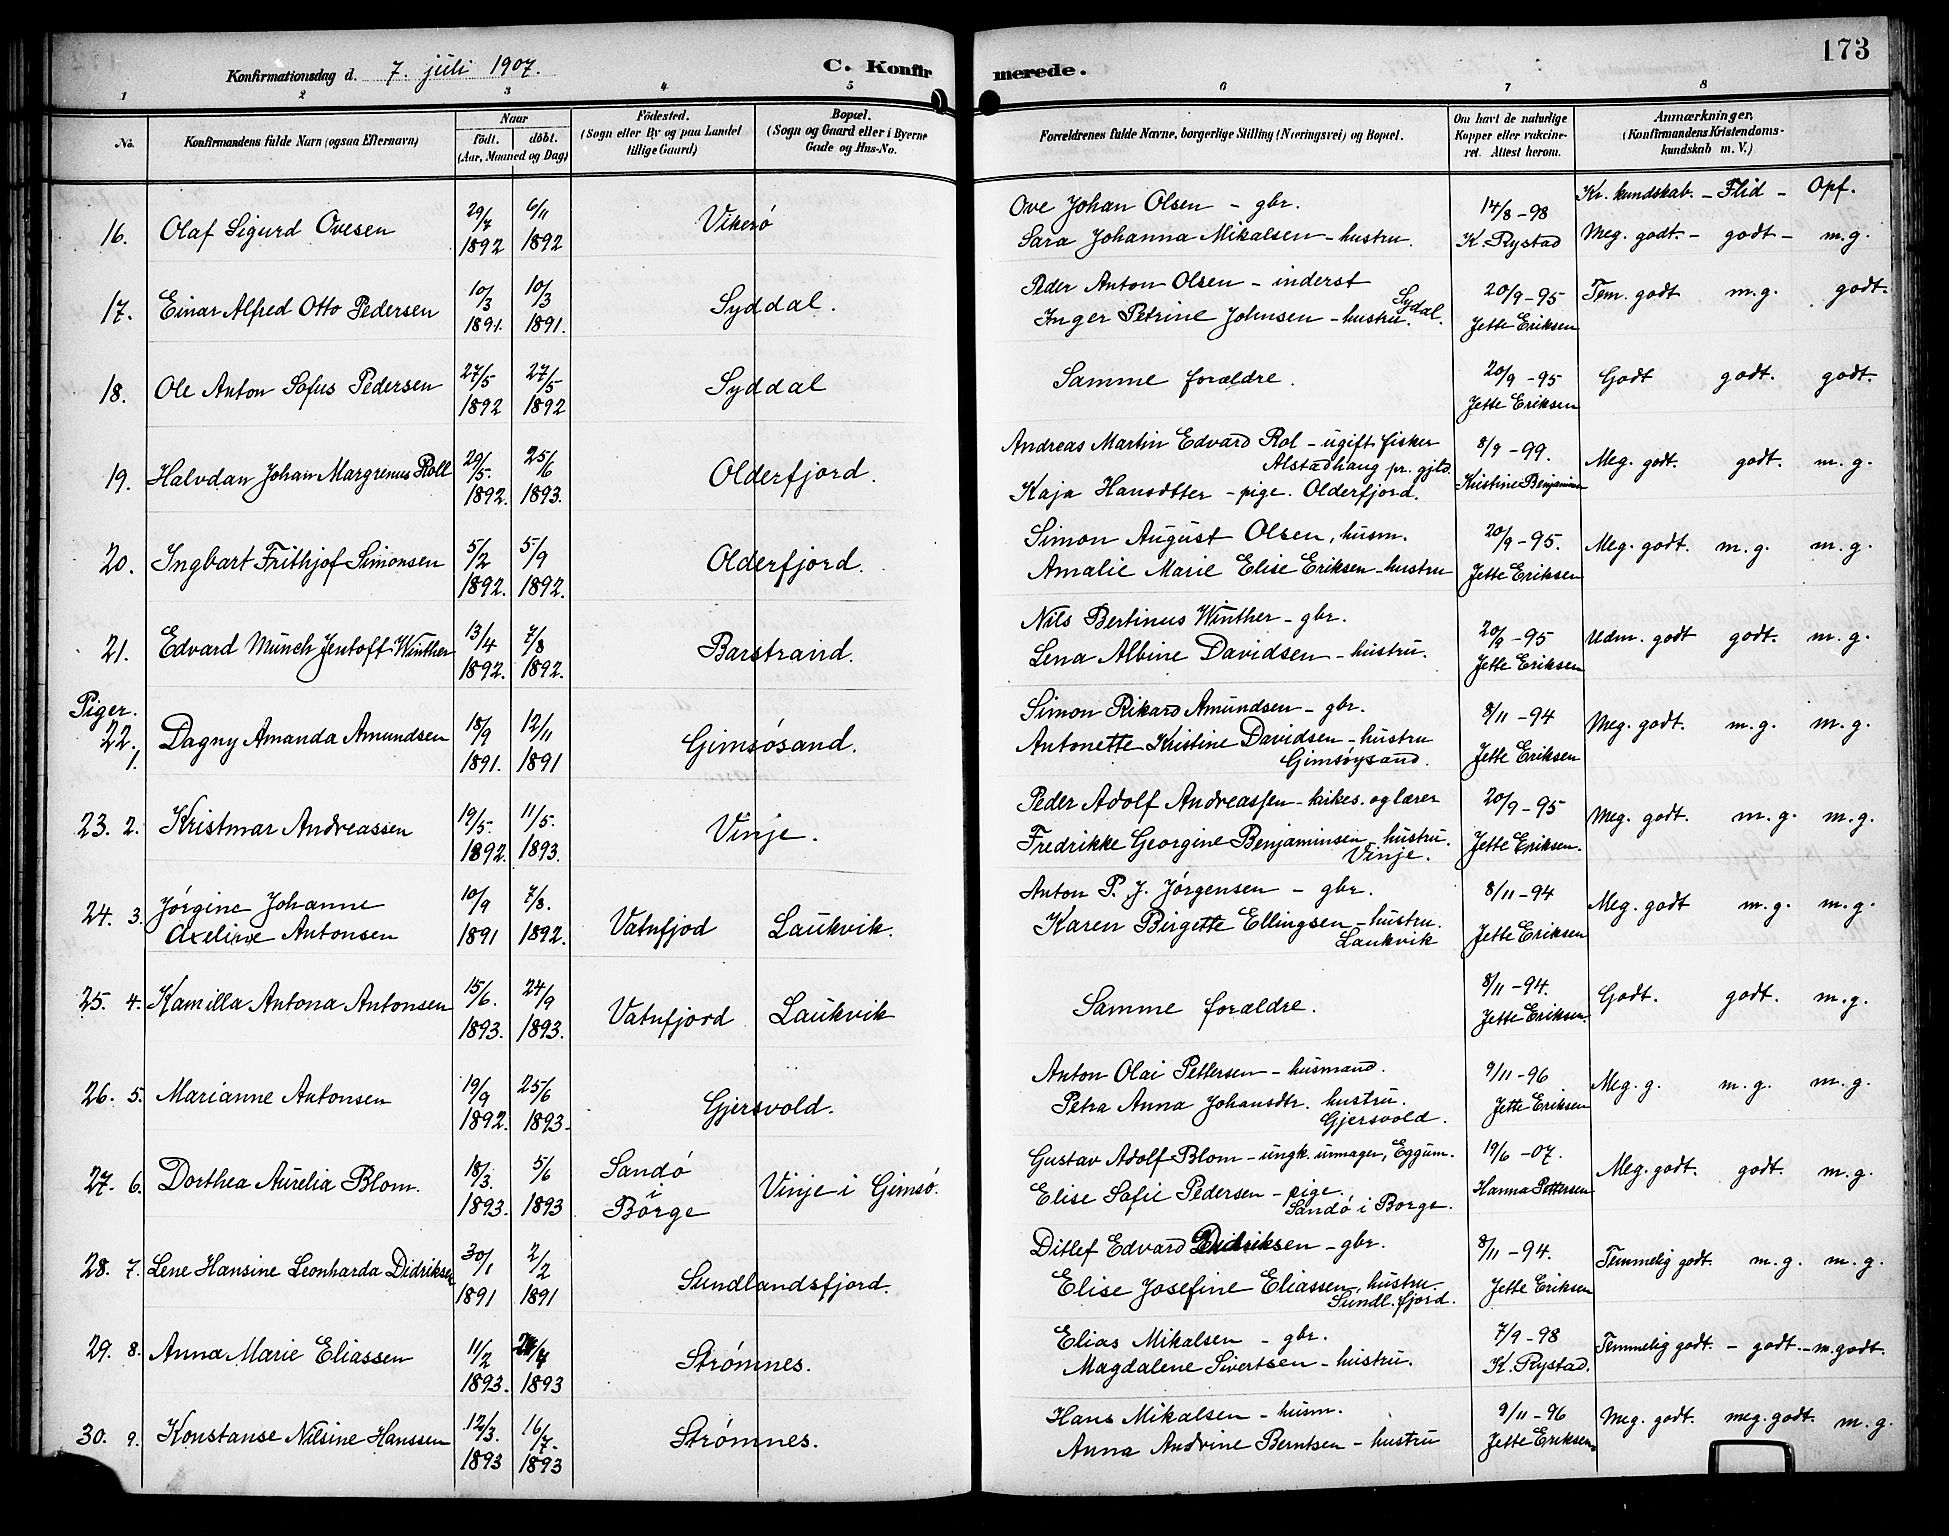 173
Konfirmationsdag d. 7. juli 1907.
C. Konfirmerede.
1 2 3 4 5 6 7 8
No.
Konfirmandens fulde Navn (ogsaa Efternavn)
Naar
födt. döbt.
(Aar, Maaned og Dag)
Födested.
(Sogn eller By og paa Landet tillige Gaard)
Bopæl.
(Sogn og Gaard eller i Byerne Gade og Hus-No.
Forældrenes fulde Navne, borgerlige Stilling (Næringsvei) og Bopæl.
Om havt de naturlige Kopper eller vakcineret. Attest herom.
Anmærkninger.
(Konfirmandens Kristendomskundskab m. V.)
Kr. kundskab. – Flid – Opf.
16. Olaf Sigurd Ovesen 29/7 1892 6/11 1892 Vikerö
Ove Johan Olsen – gbr.
Sara Johanna Mikalsen – hustru.
14/8 – 98 K. Rystad
Meg. godt. – godt – m.g.
17. Einar Alfred Otto Pedersen 10/3 1891. 10/3 1891. Syddal.
Peder Anton Olsen – inderst
Inger Petrine Johnsen – hustru. Sydal.
20/9 – 95 Jette Eriksen
Tem. godt m.g. godt.
18. Ole Anton Sofus Pedersen 27/5 1892 27/5 1892 Syddal
Samme forældre.
20/9 – 95 Jette Eriksen
Godt godt. godt.
19. Halvdan Johan Margrenus Roll 29/5. 1892. 25/6 1893. Olderfjord.
Andreas Martin Edvard Rol – ugift fisker
Alstadhaug pr. gjld.
Kaja Hansdtter – pige. Olderfjord.
8/9 – 99. Kristine Benjaminsen
Meg. godt. godt. m.g.
20. Ingbart Frithjof Simonsen 5/2 1892. 5/9 1892. Olderfjord.
Simon August Olsen, husm.
Amalie Marie Elise Eriksen – hustru
20/9 – 95. Jette Eriksen
Meg. godt. m.g. m.g.
21. Edvard Munch Jentoft Winther 13/4 1892. 7/8 1892. Barstrand.
Nils Bertinus Winther – gbr.
Lena Albine Davidsen – hustru.
20/9 – 95 Jette Eriksen
Udm. godt godt. m.g.
Piger.
22. 1. Dagny Amanda Amundsen 18/9 1891. 12/11 1891 Gimsösand.
Simon Rikard Amundsen – gbr.
Antonette Kristine Davidsen – hustru
Gimsöysand.
8/11 – 94 Jette Eriksen
Meg. godt. m.g. m.g.
23. 2. Kristmar Andreassen 19/5. 1892. 11/5. 1893. Vinje.
Peder Adolf Andreassen – kirkes. og lærer
Fredrikke Georgine Benjaminsen – hustru.
Vinje.
20/9 – 95 Jette Eriksen.
Meg. godt. m.g. m.g.
24. 3. Jörgine Johanne
Axeline Antonsen 10/9 1891 7/8. 1892. Vatnfjod Laukvik.
Anton P. J. Jörgensen – gbr.
Karen Birgette Ellingsen – hustru.
Laukvik
8/11 – 94 Jette Eriksen
Meg. godt m.g. m.g.
25. 4. Kamilla Antona Antonsen 15/6. 1893. 24/9 1893. Vatnfjord Laukvik
Samme forældre.
8/11 – 94. Jette Eriksen.
Godt. godt. m.g.
26. 5. Marianne Antonsen 19/9 1892. 25/6 1893. Gjersvold.
Anton Olai Pettersen – husmand.
Petra Anna Johansdtr. hustru.
Gjersvold.
9/11 – 96 Jette Eriksen
Meg. g. m.g. m.g.
27. 6. Dorthea Aurelia Blom. 18/3. 1893. 5/6 1893 Sandö i Börge Vinje i Gimsö.
Gustav Adolf Blom – ungk. urmager, Eggum.
Elise Sofie Pedersen – pige.
Sandö i Borge.
19/6 – 07. Hanna Pettersen
Meg. godt. godt. m.g.
28. 7. Lene Hansine Leonharda Didriksen 30/1 1891 2/2 1891 Sundlandsfjord.
Ditlef Edvard Didriksen – gbr.
Elise Josefine Eliassen, hustru.
Sundl. fjord.
8/11 – 94. Jette Eriksen
Temmelig godt. m.g. m.g.
29. 8. Anna Marie Eliassen 11/2 1893. 1893 Strömnes.
Elias Mikalsen – gbr.
Magdalene Sivertsen – hustru.
7/9 – 98 K. Rystad.
Temmelig godt. – godt. – m. godt.
30. 9. Konstanse Nilsine Hanssen 12/3. 1893 16/7. 1893 Strömnes.
Hans Mikalsen – husm.
Anna Andrine Berntsen – hustru
9/11 – 96 Jette Eriksen
Meg. godt. meg. godt. m.g.